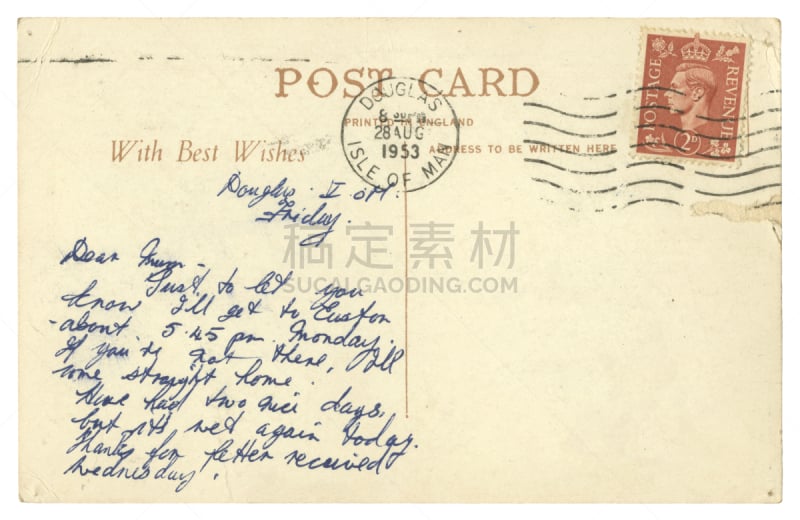 POST CARD
PRINTED IN ENGLAND
With Best Wishes
ADDRESS TO BE WRITTEN HERE
DOUGLAS
28 AUG
1953
ISLE OF MAN
POSTAGE
REVENUE
2D
Douglas. I. O. M.
Friday.
Dear Mum -
Just to let you
know I'll get to Euston
about 5.45 pm. Monday.
If you're not there, I'll
come straight home.
Have had two nice days,
but it's wet again today.
Thanks for letter received
Wednesday.
稿定素材
SUCAI.GAODING.COM